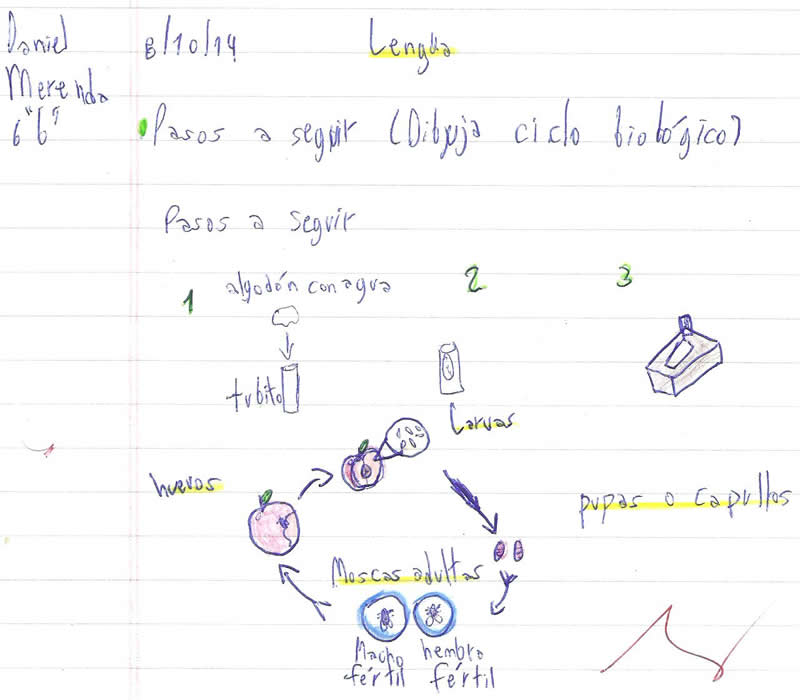 Daniel
Merenda
6 "b"
8/10/14
Lengua
Pasos a seguir (Dibuja ciclo biológico)
Pasos a seguir
1
algodón con agua
tubito
2
3
Larvas
huevos
pupas o capullos
Moscas adultas
Macho
fértil
hembra
fértil